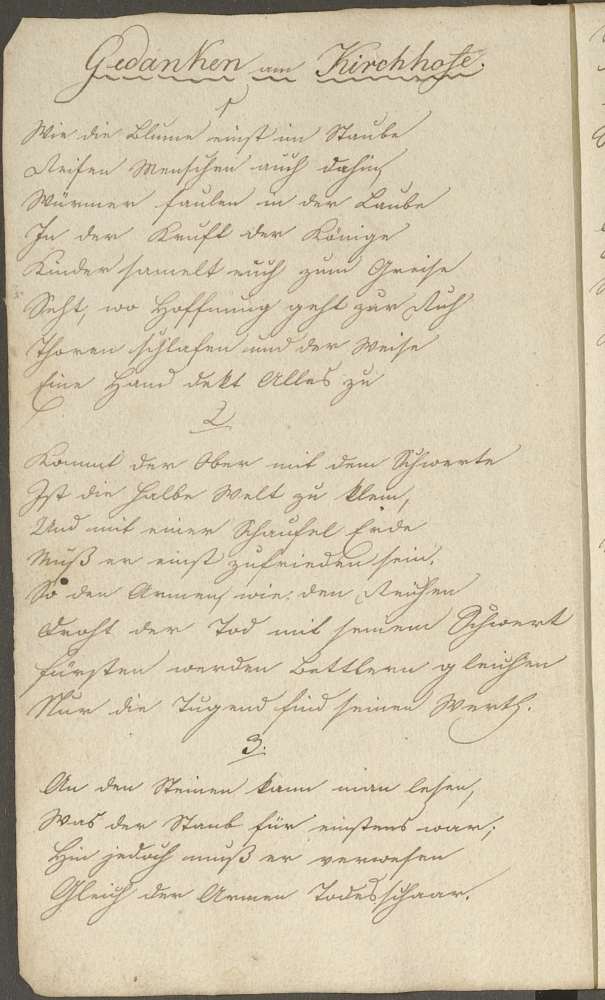 Gedanken am Kirchhofe.
1
Wie die Blume einst im Staube
Reifen Menschen auch dahin,
Würmer faulen in der Laube
In der Kruft der Könige
Kinder samelt euch zum Greise
Seht, wo Hoffnung geht zur Ruh
Thoren schlafen und der Weise
Eine Hand dekt Alles zu
2
Kommt der Ober mit dem Schwerte
Ist die halbe Welt zu klein,
Und mit einer Schaufel Erde
Muß er einst zufrieden sein.
So den Armen, wie den Reichen
Droht der Tod mit seinem Schwert
Fürsten werden Bettlern gleichen
Nur die Tugend find seinen Werth.
3.
An den Steinen kann man lesen,
Was der Staub für einstens war;
Hin jedoch muß er verwesen
Gleich der Armen Todesschaar.